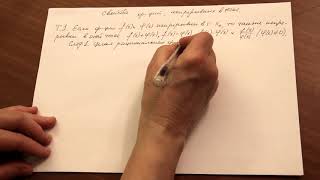 Свойства ф-ций, непрерывных в точке.
Т.1. Если ф-ции f(x) и φ(x) непрерывны в т. x₀, то также непре-
рывны в этой точке f(x)+φ(x), f(x)-φ(x), f(x)·φ(x) и f(x)/φ(x) (φ(x)≠0)
Следст. Целая рациональная